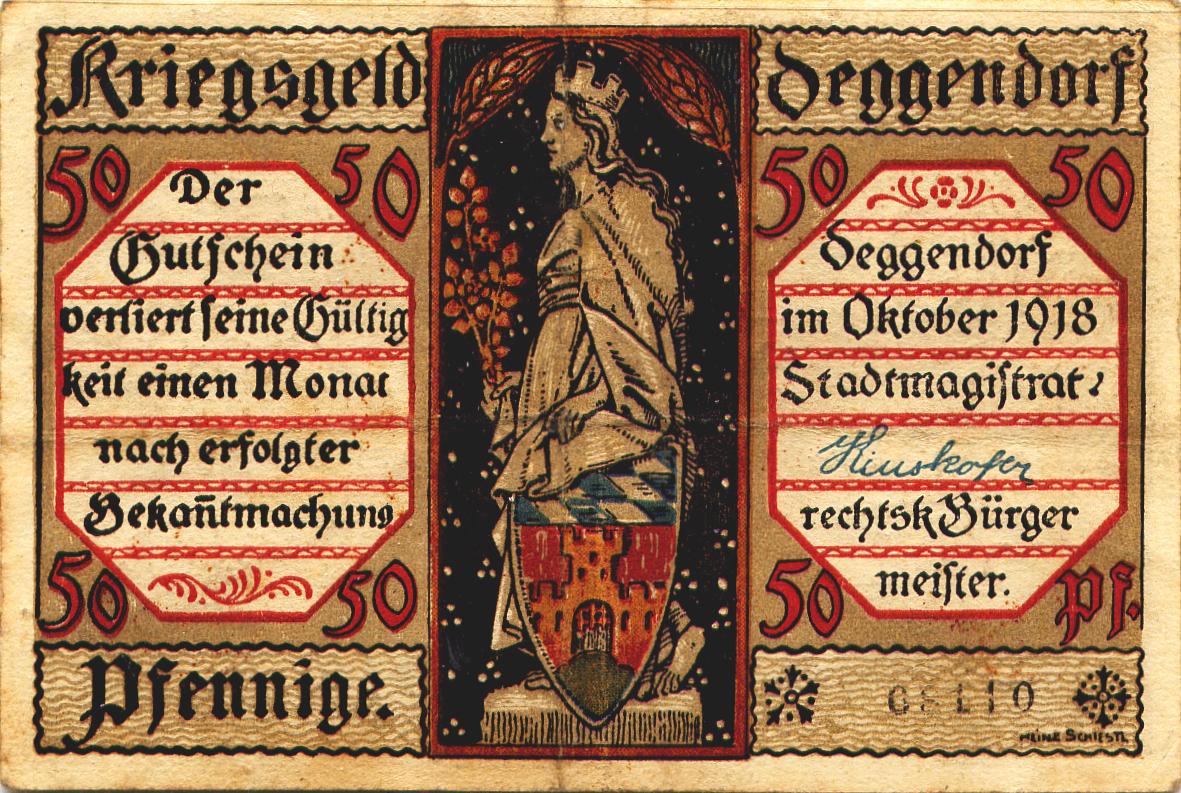 Kriegsgeld
50 50
Der
Gutschein
verliert seine Gültig
keit einen Monat
nach erfolgter
Bekañtmachung
50 50
Pfennige.
Deggendorf
50 50
Deggendorf
im Oktober 1918
Stadtmagistrat:
rechtsk Bürger
meister.
50 Pf.
Heinz Schiestl